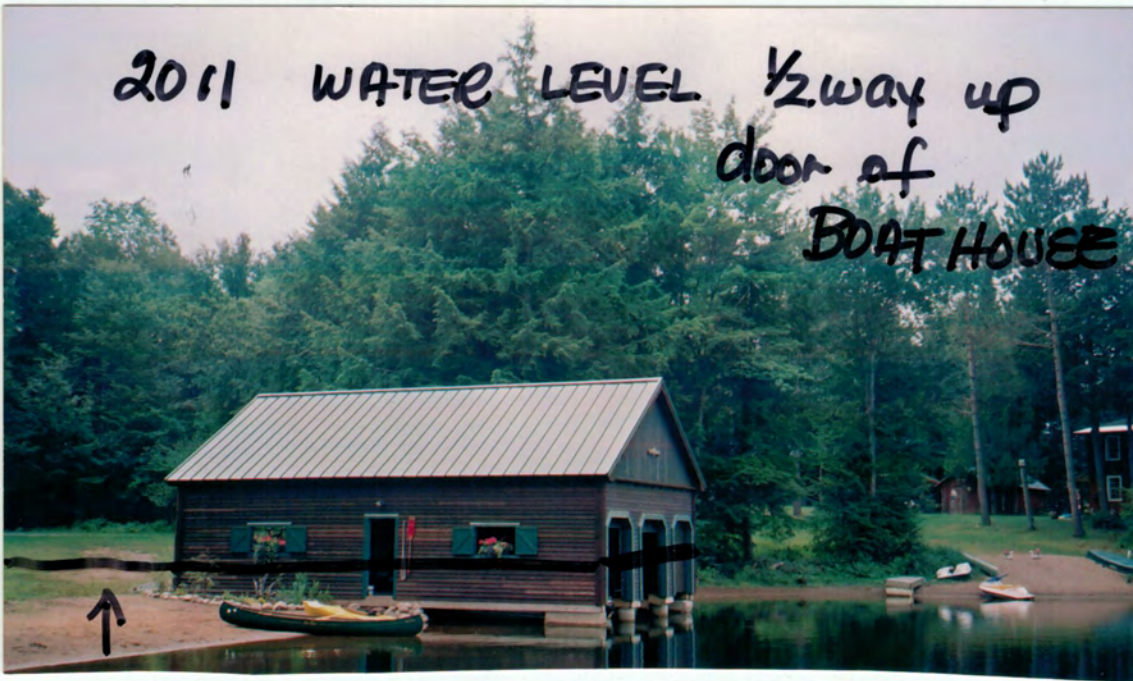 2011 WATER LEVEL 1/2 way up
door of
BOAT HOUSE